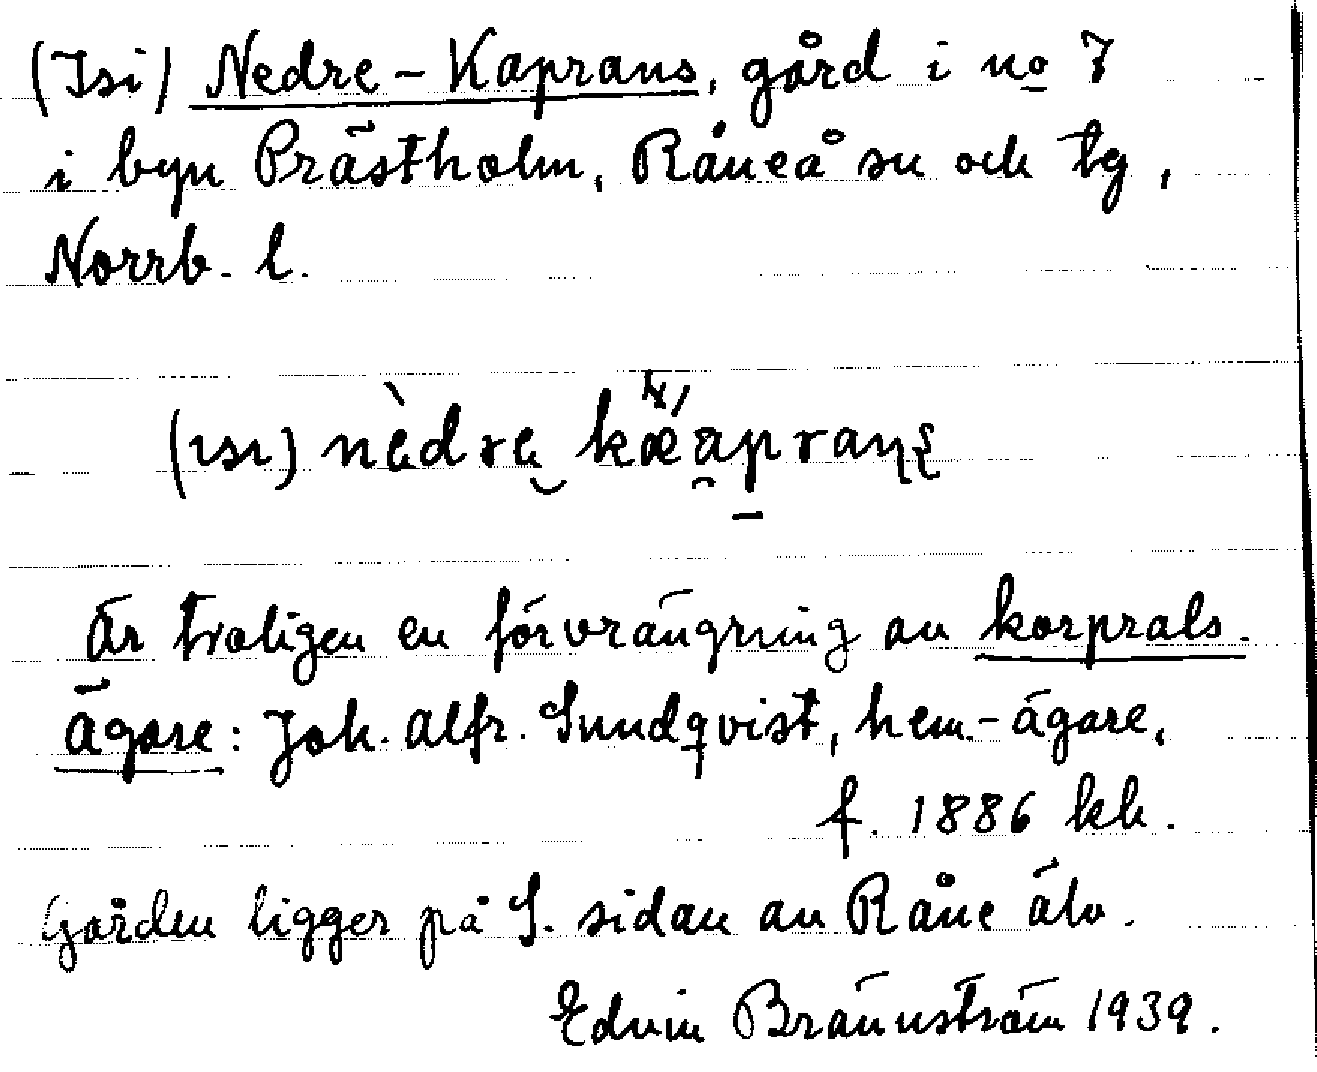 (Isi) Nedre-Kaprans, gård i no 7
i byn Prästholm, Råneå sn och tg,
Norrb. l.
(ısı) nèdre kæ̀apranş
Är troligen en förvrängning av korprals.
Ägare: Joh. Alfr. Sundqvist, hem.-ägare,
f. 1886 kh.
Gården ligger på S. sidan av Råne älv.
Edvin Brännström 1939.